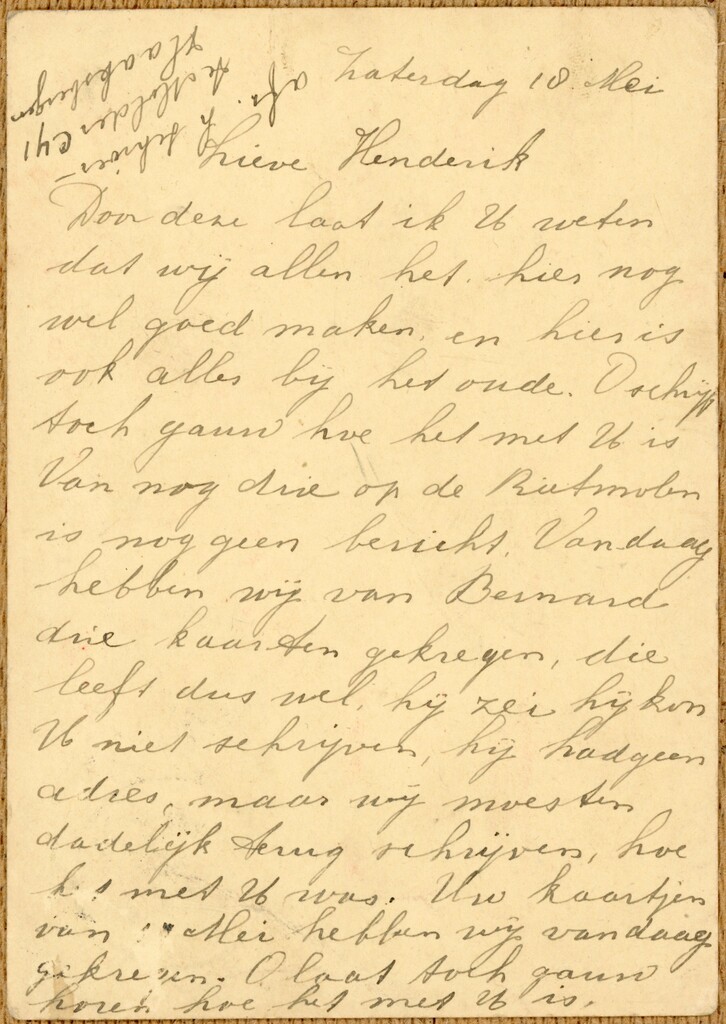 afz. H Schreur
de Molder C41
Haaksbergen
Zaterdag 18 Mei
Lieve Henderik
Door deze laat ik U weten
dat wij allen het hier nog
wel goed maken, en hier is
ook alles bij het oude. O schrijf
toch gauw hoe het met U is
Van nog drie op de Rietmolen
is nog geen bericht. Vandaag
hebben wij van Bernard
drie kaarten gekregen, die
leeft dus wel, hij zei hij kon
U niet schrijven, hij had geen
adres, maar wij moesten
dadelijk terug schrijven, hoe
h t met U was. Uw kaartjen
van Mei hebben wij vandaag
gekregen. O laat toch gauw
horen hoe het met U is.